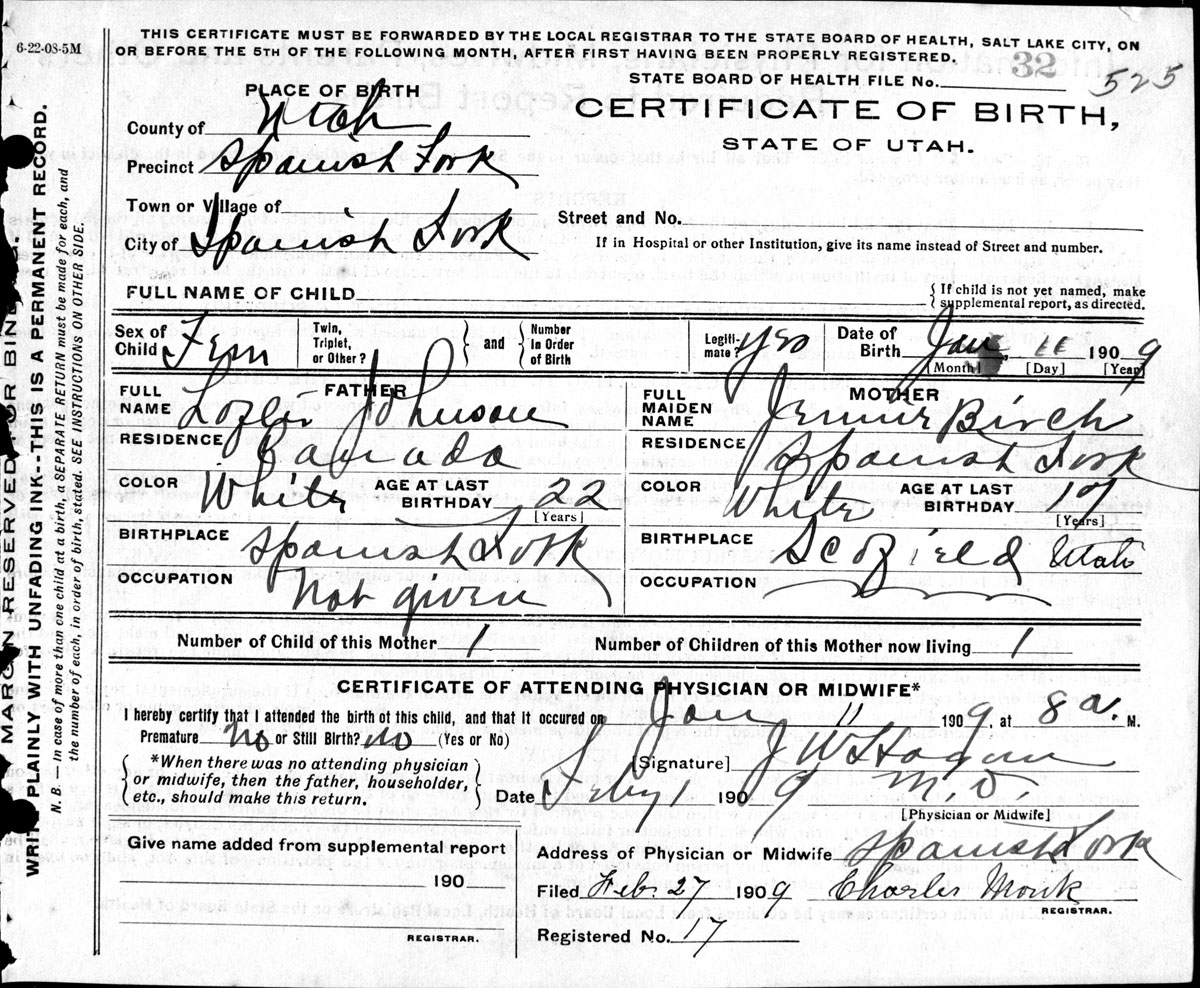 6-22-08-5M
THIS CERTIFICATE MUST BE FORWARDED BY THE LOCAL REGISTRAR TO THE STATE BOARD OF HEALTH, SALT LAKE CITY, ON
OR BEFORE THE 5TH OF THE FOLLOWING MONTH, AFTER FIRST HAVING BEEN PROPERLY REGISTERED.
32
525
STATE BOARD OF HEALTH FILE No.
PLACE OF BIRTH
CERTIFICATE OF BIRTH,
STATE OF UTAH.
County of Utah
Precinct Spanish Fork
Town or Village of
Street and No.
City of Spanish Fork
If in Hospital or other Institution, give its name instead of Street and number.
FULL NAME OF CHILD
{ If child is not yet named, make
supplemental report, as directed.
Sex of Child Fem
Twin, Triplet, or Other?
} and {
Number in Order of Birth
Legitimate? Yes
Date of Birth Jan 11 1909
[Month] [Day] [Year]
FATHER
FULL NAME Johnson
RESIDENCE Canada
COLOR White AGE AT LAST BIRTHDAY 22
[Years]
BIRTHPLACE Spanish Fork
OCCUPATION Not given
MOTHER
FULL MAIDEN NAME Jennie Birch
RESIDENCE Spanish Fork
COLOR White AGE AT LAST BIRTHDAY
[Years]
BIRTHPLACE Scofield Utah
OCCUPATION
Number of Child of this Mother 1 Number of Children of this Mother now living 1
CERTIFICATE OF ATTENDING PHYSICIAN OR MIDWIFE*
I hereby certify that I attended the birth of this child, and that it occured on Jan 11 1909. at 8 a. M.
Premature No or Still Birth? No (Yes or No)
{ *When there was no attending physician
or midwife, then the father, householder,
etc., should make this return. }
[Signature] J W Hagan
Date Feby 1 1909 M.D.
[Physician or Midwife]
Give name added from supplemental report
190
REGISTRAR.
Address of Physician or Midwife Spanish Fork
Filed Feb. 27 1909 Charles Monk
REGISTRAR.
Registered No. 17
MARGIN RESERVED FOR BINDING.
WRITE PLAINLY WITH UNFADING INK---THIS IS A PERMANENT RECORD.
N. B. — In case of more than one child at a birth, a SEPARATE RETURN must be made for each, and
the number of each, in order of birth, stated. SEE INSTRUCTIONS ON OTHER SIDE.